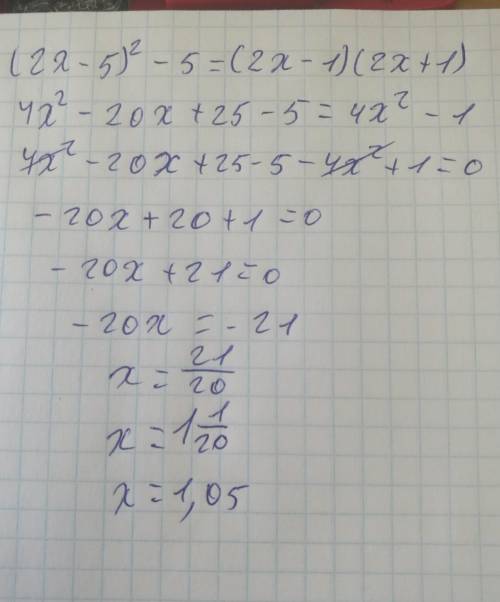 (2x - 5)² - 5 = (2x - 1)(2x + 1)
4x² - 20x + 25 - 5 = 4x² - 1
4x² - 20x + 25 - 5 - 4x² + 1 = 0
- 20x + 20 + 1 = 0
- 20x + 21 = 0
- 20x = - 21
x = 21/20
x = 1 1/20
x = 1,05